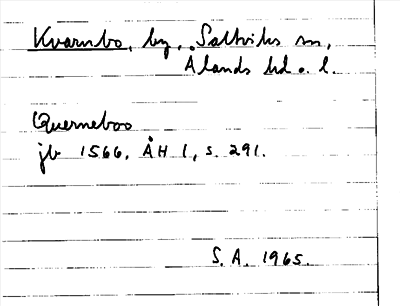 Kvarnbo, by, Saltviks sn,
Ålands hd o. l.
Querneboo
jb 1566, ÅH 1, s. 291.
S. A. 1965.